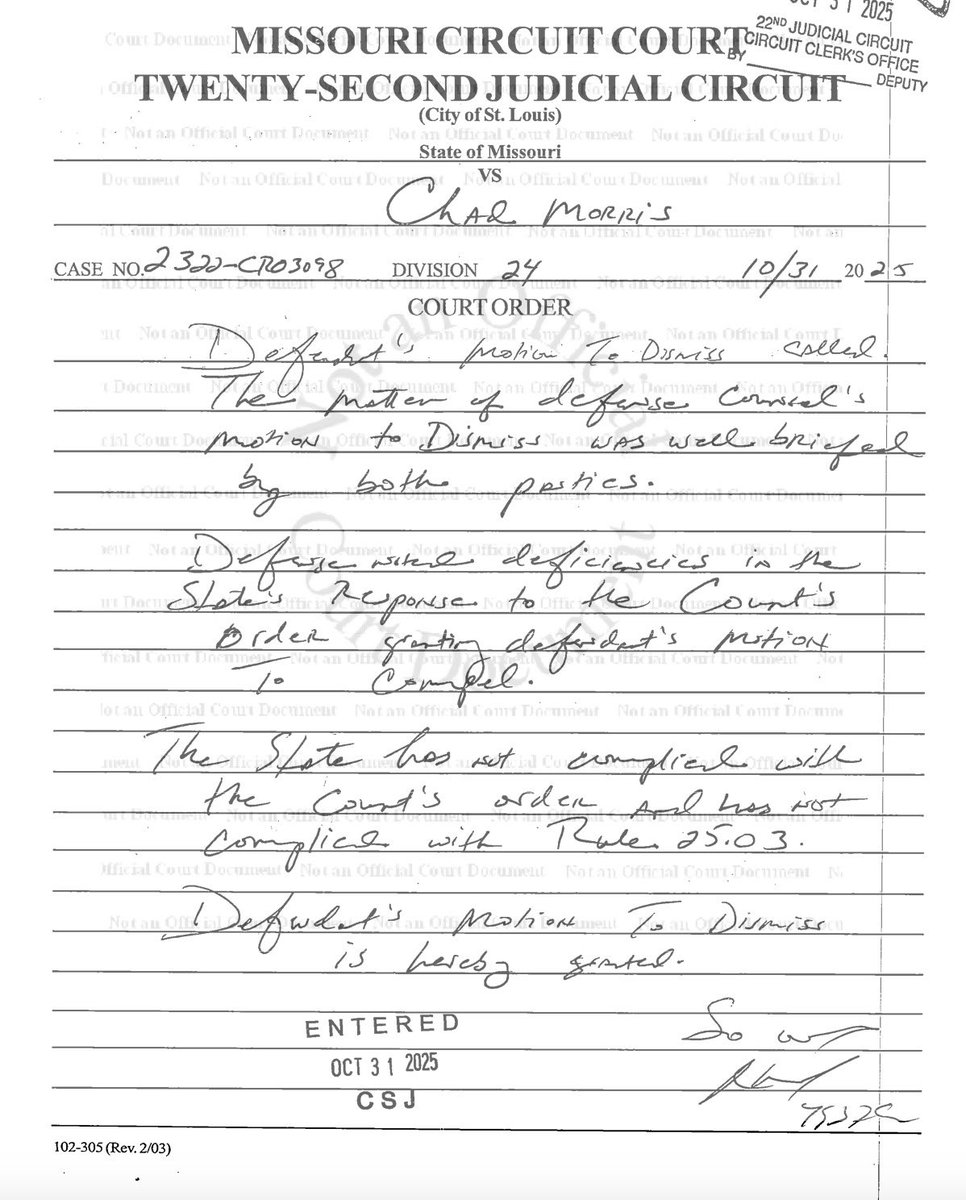 OCT 31 2025
22ND JUDICIAL CIRCUIT
CIRCUIT CLERK'S OFFICE
BY DEPUTY
MISSOURI CIRCUIT COURT
TWENTY-SECOND JUDICIAL CIRCUIT
(City of St. Louis)
State of Missouri
VS
Chad Morris
CASE NO. 2322-CR03098 DIVISION 24 10/31 2025
COURT ORDER
Defendant's Motion To Dismiss called.
The matter of defense Counsel's
Motion to Dismiss was well briefed
by both parties.
Defense noted deficiencies in the
State's Response to the Court's
Order granting defendant's Motion
To Compel.
The State has not complied with
the Court's order and has not
complied with Rule 25.03.
Defendant's Motion To Dismiss
is hereby granted.
So
ENTERED
OCT 31 2025
CSJ
102-305 (Rev. 2/03)
Not an Official Court Document